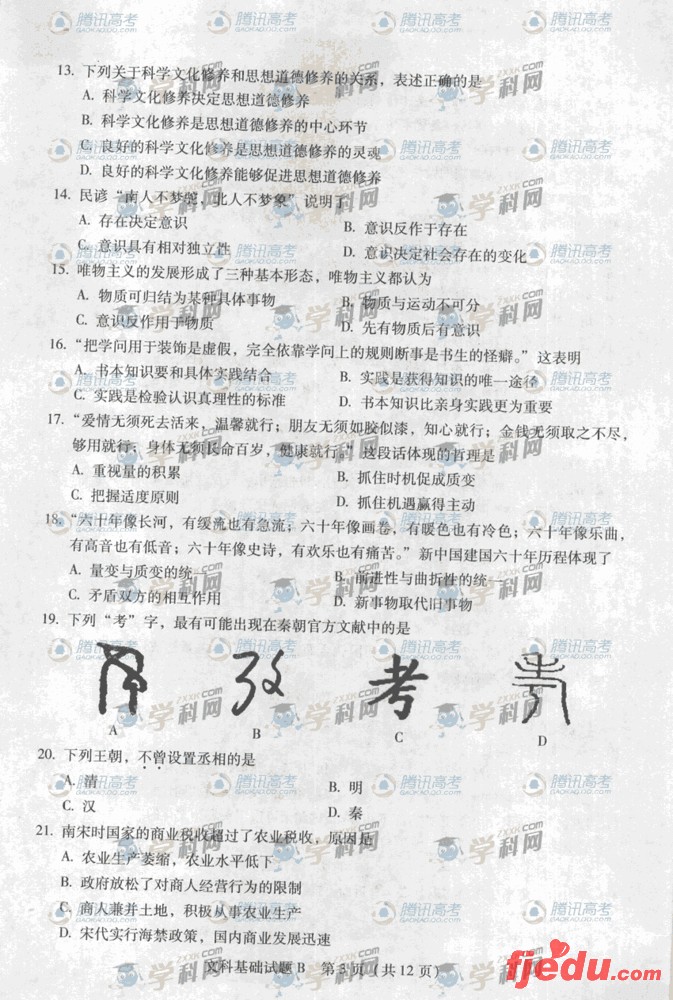 13. 下列关于科学文化修养和思想道德修养的关系，表述正确的是
A. 科学文化修养决定思想道德修养
B. 科学文化修养是思想道德修养的中心环节
C. 良好的科学文化修养是思想道德修养的灵魂
D. 良好的科学文化修养能够促进思想道德修养
14. 民谚“南人不梦驼，北人不梦象”说明了
A. 存在决定意识 B. 意识反作用于存在
C. 意识具有相对独立性 D. 意识决定社会存在的变化
15. 唯物主义的发展形成了三种基本形态，唯物主义都认为
A. 物质可归结为某种具体事物 B. 物质与运动不可分
C. 意识反作用于物质 D. 先有物质后有意识
16. “把学问用于装饰是虚假，完全依靠学问上的规则断事是书生的怪癖。”这表明
A. 书本知识要和具体实践结合 B. 实践是获得知识的唯一途径
C. 实践是检验认识真理性的标准 D. 书本知识比亲身实践更为重要
17. “爱情无须死去活来，温馨就行；朋友无须如胶似漆，知心就行；金钱无须取之不尽，
够用就行；身体无须长命百岁，健康就行。”这段话体现的哲理是
A. 重视量的积累 B. 抓住时机促成质变
C. 把握适度原则 D. 抓住机遇赢得主动
18. “六十年像长河，有缓流也有急流；六十年像画卷，有暖色也有冷色；六十年像乐曲，
有高音也有低音；六十年像史诗，有欢乐也有痛苦。”新中国建国六十年历程体现了
A. 量变与质变的统一 B. 前进性与曲折性的统一
C. 矛盾双方的相互作用 D. 新事物取代旧事物
19. 下列“考”字，最有可能出现在秦朝官方文献中的是
考
A B C D
20. 下列王朝，不曾设置丞相的是
A. 清 B. 明
C. 汉 D. 秦
21. 南宋时国家的商业税收超过了农业税收，原因是
A. 农业生产萎缩，农业水平低下
B. 政府放松了对商人经营行为的限制
C. 商人兼并土地，积极从事农业生产
D. 宋代实行海禁政策，国内商业发展迅速
文科基础试题 B 第 3 页（共 12 页）
腾讯高考
GAOKAO.QQ.COM
学科网
ZXXK.COM
fjedu.com